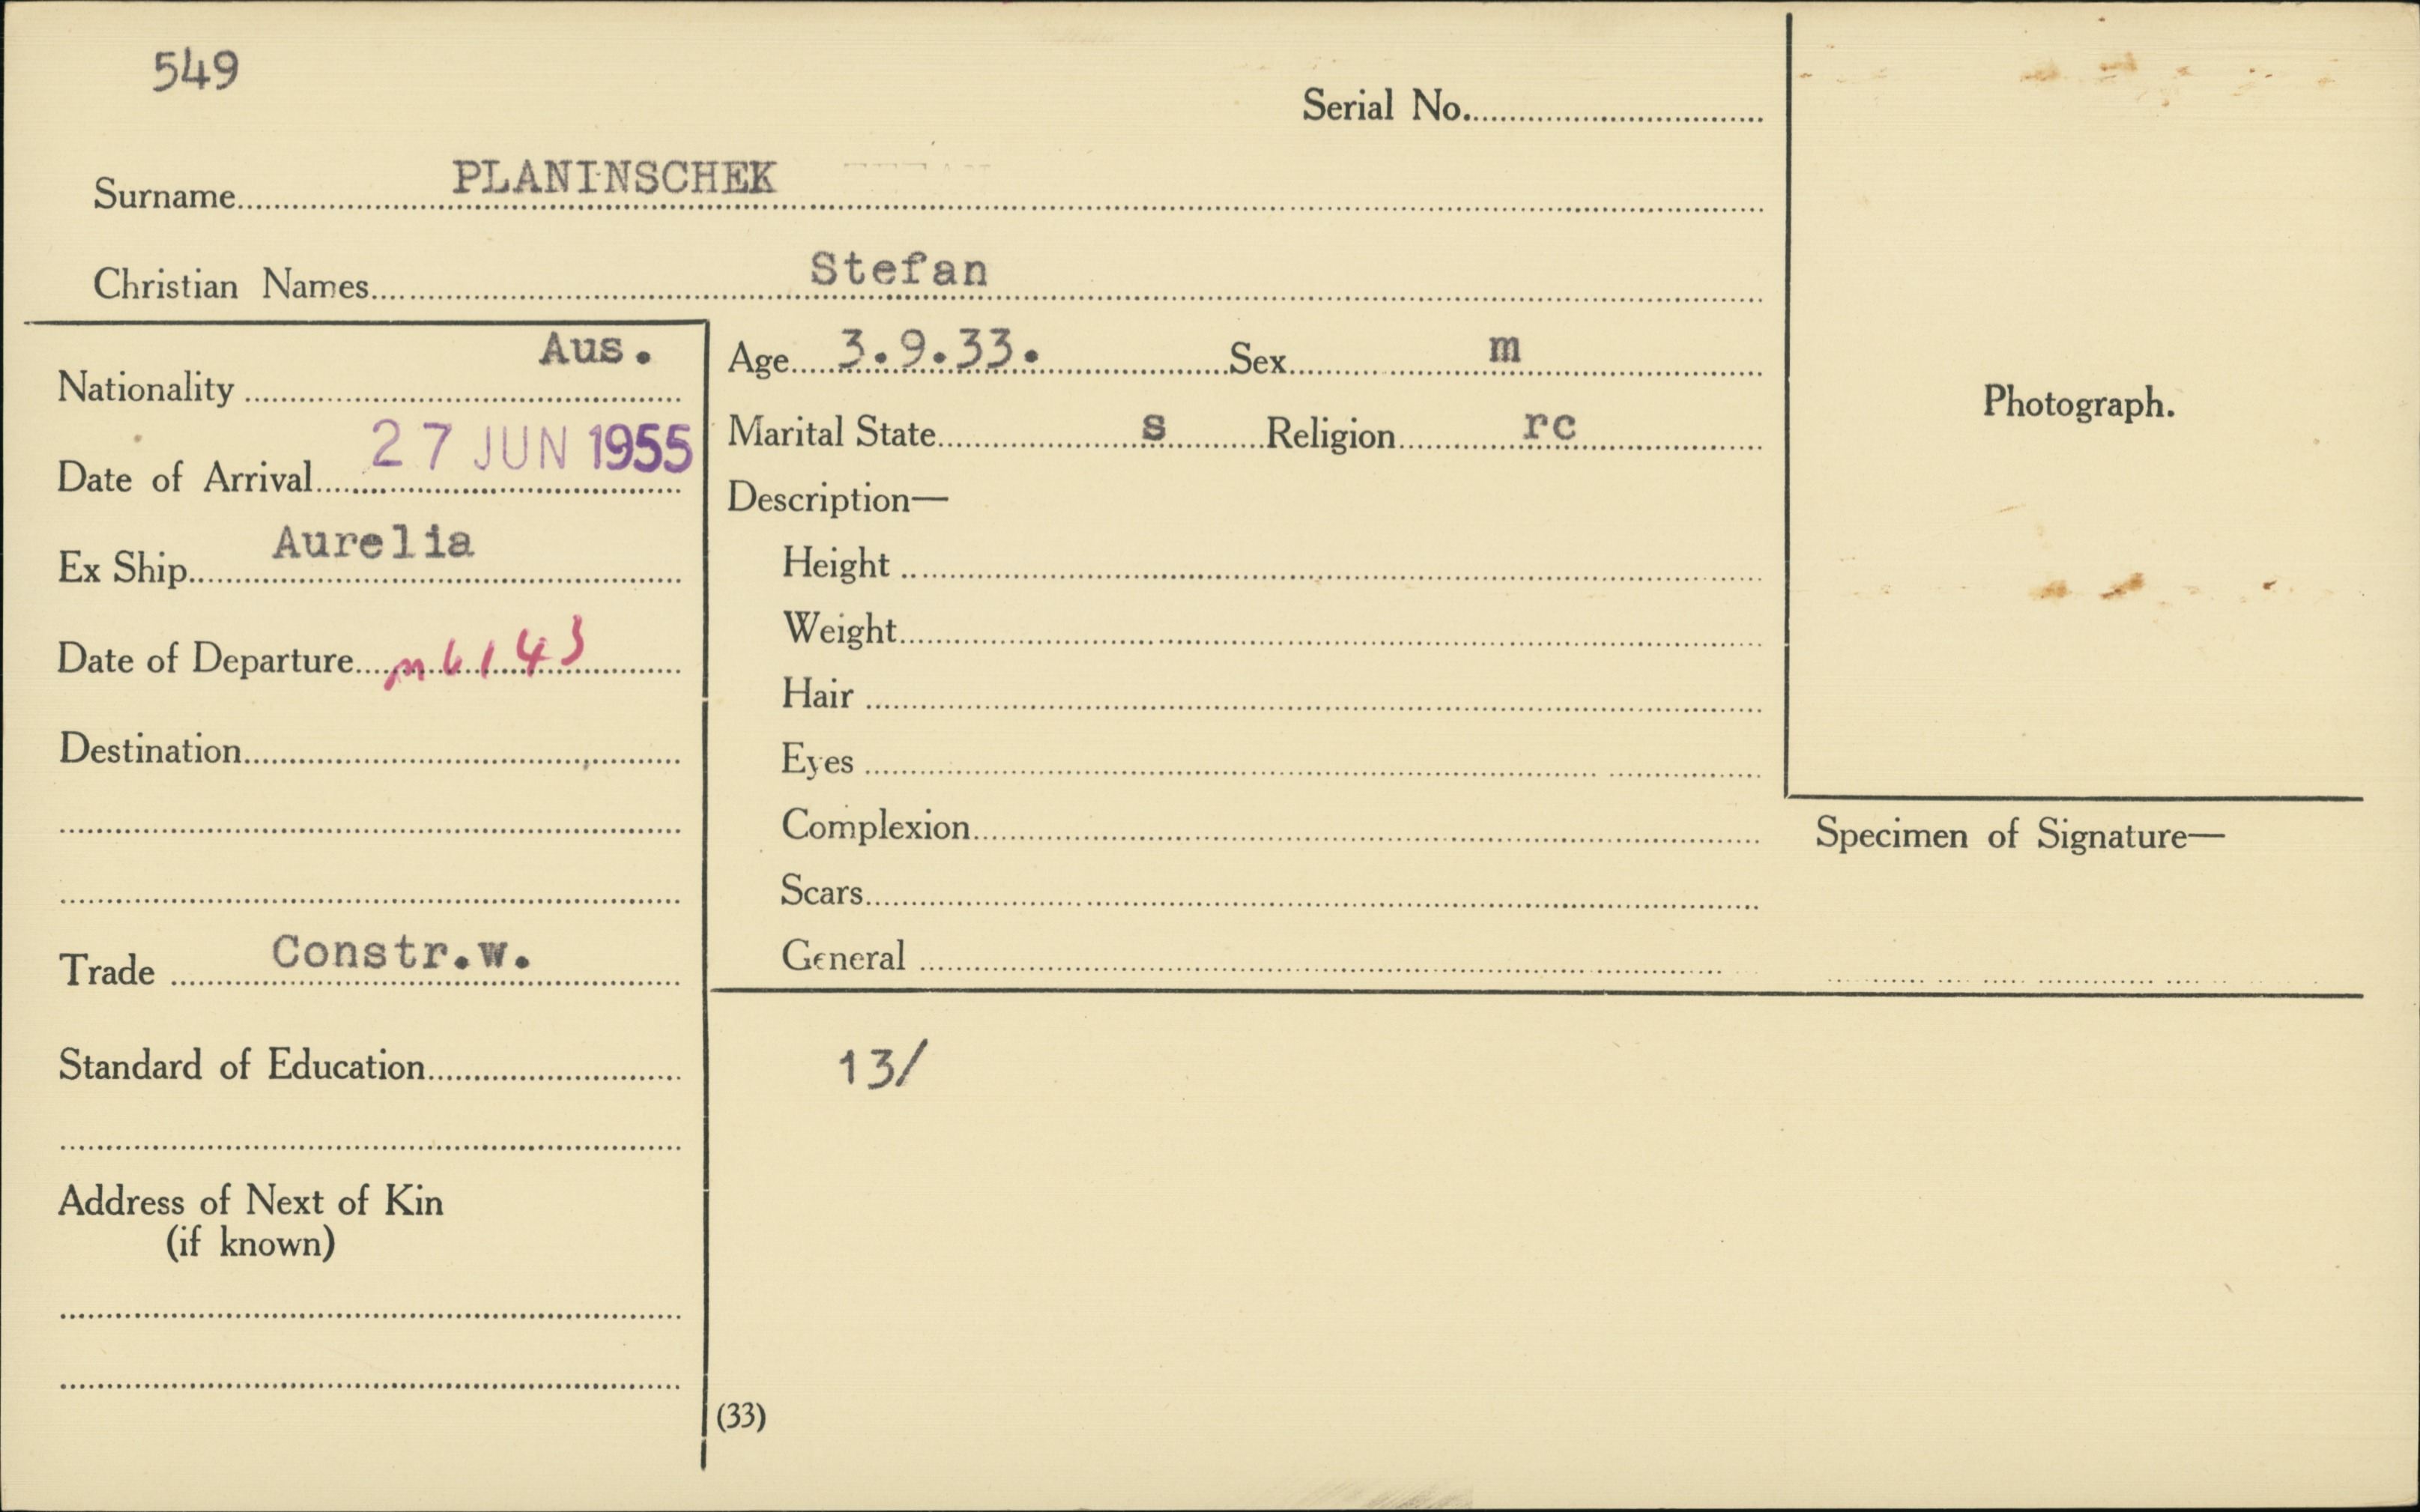 549
Serial No.
Surname PLANINSCHEK
Christian Names Stefan
Nationality Aus.
Date of Arrival 27 JUN 1955
Ex Ship Aurelia
Date of Departure
Destination
Trade Constr.w.
Standard of Education
Address of Next of Kin
(if known)
Age 3.9.33. Sex m
Marital State s Religion rc
Description—
Height
Weight
Hair
Eyes
Complexion
Scars
General
13/
(33)
Photograph.
Specimen of Signature—